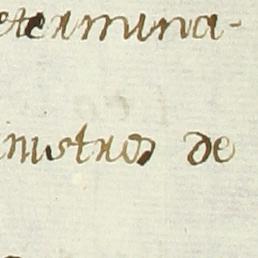 etermina-
nistros de